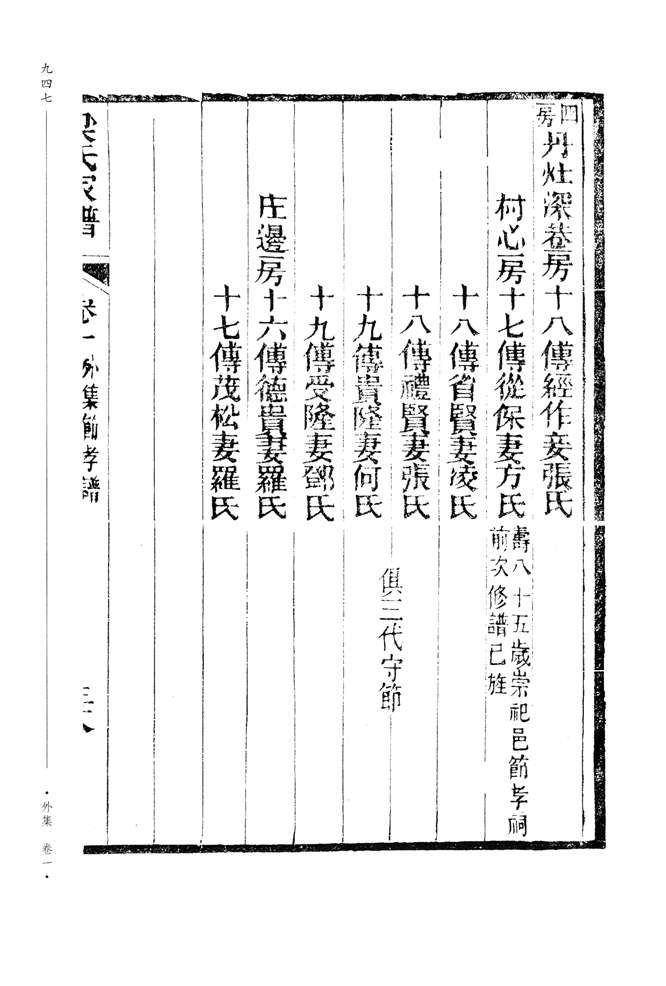 四房丹灶深巷房十八傳經作妾張氏
村心房十七傳從保妻方氏
壽八十五歲崇祀邑節孝祠
前次修譜已旌
十八傳省賢妻凌氏
十八傳禮賢妻張氏
俱三代守節
十九傳貴隆妻何氏
十九傳受隆妻鄧氏
庄邊房十六傳德貴妻羅氏
十七傳茂松妻羅氏
梁氏家譜 卷一外集節孝譜
九四七
·外集 卷一·